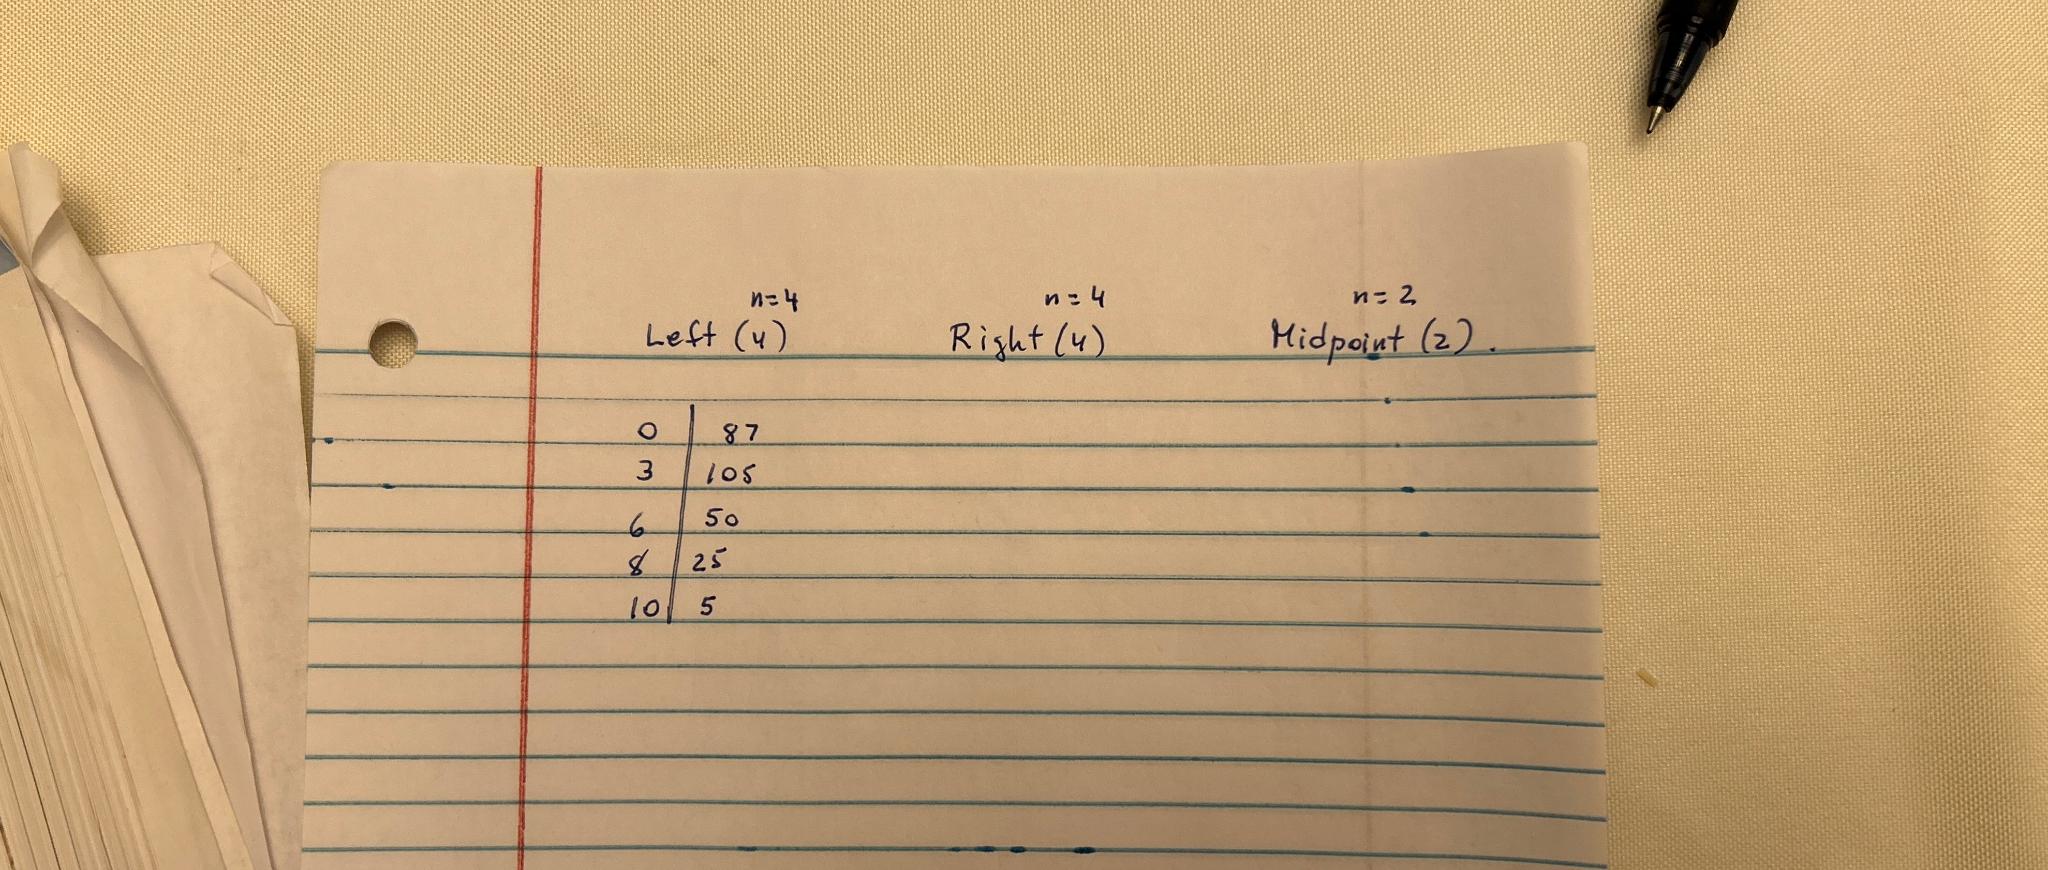 n=4 n=4 n=2
Left (4) Right (4) Midpoint (2).
0 87
3 105
6 50
8 25
10 5